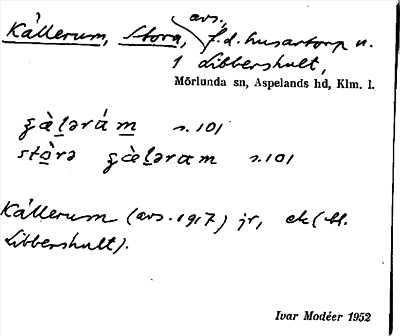 Källerum, Stora, avs., f.d. husartorp u.
1 Libbershult,
Mörlunda sn, Aspelands hd, Klm. l.
s. 101
s. 101
Källerum (avs. 1917) jr, ek (bl.
Libbershult).
Ivar Modéer 1952